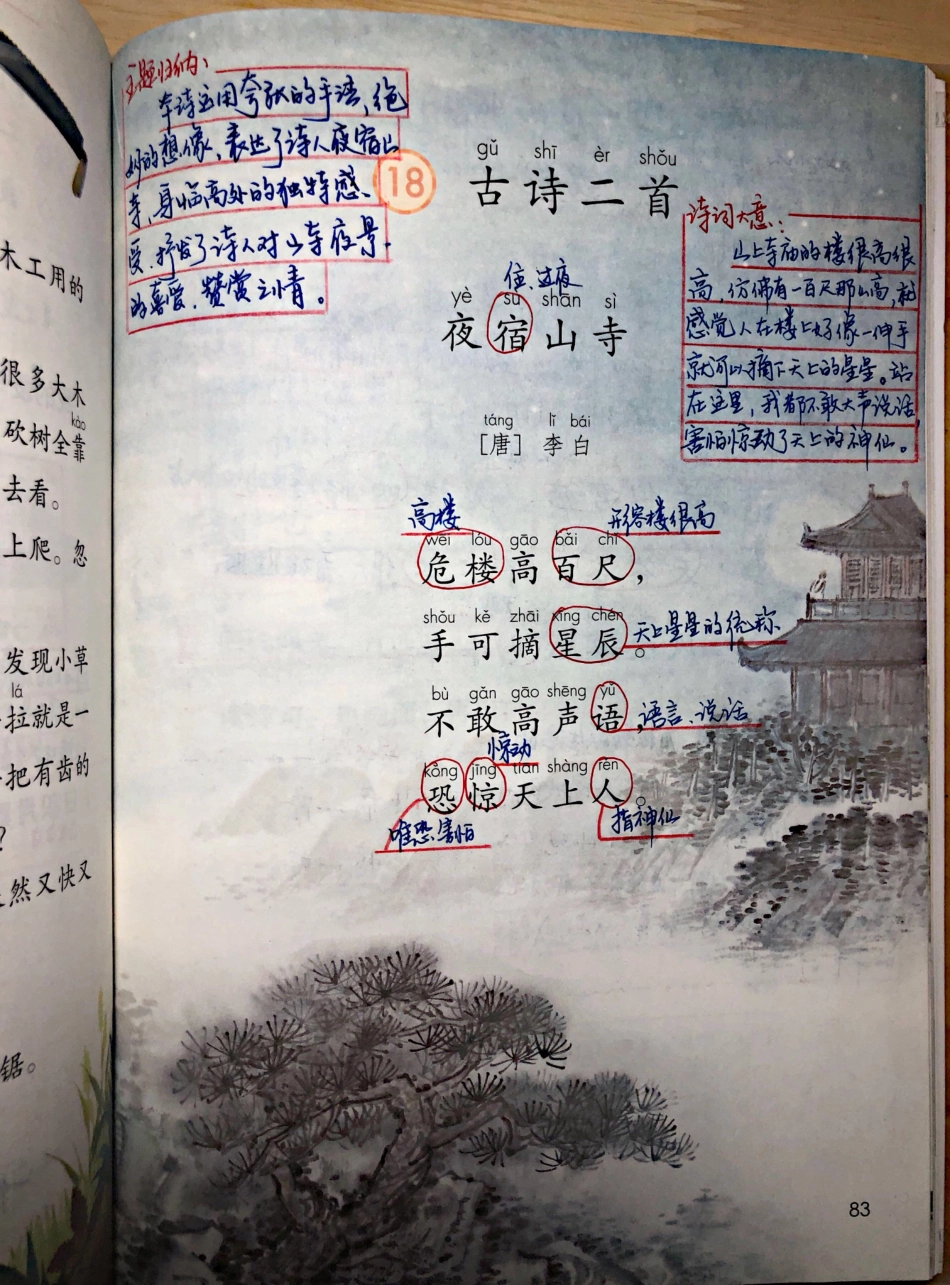 木工用的
很多大木
kào
砍树全靠
去看。
上爬。忽
发现小草
lá
拉就是一
把有齿的
?
然又快又
锯。
主题归纳：
本诗运用夸张的手语，绝
妙的想像，表达了诗人夜宿山
寺，身临高处的独特感
受，抒发了诗人对山寺夜景
的喜爱、赞赏之情。
18
gǔ shī èr shǒu
古诗二首
诗词大意：
山上寺庙的楼很高很
高，仿佛有一百尺那山高，就
感觉人在楼上好像一伸手
就可以摘下天上的星星。站
在这里，我都不敢大声说话，
害怕惊动了天上的神仙。
住、过夜
yè sù shān sì
夜宿山寺
táng lǐ bái
[唐] 李白
高楼 形容楼很高
wēi lóu gāo bǎi chǐ
危楼高百尺，
shǒu kě zhāi xīng chén
手可摘星辰。 天上星星的统称
bù gǎn gāo shēng yǔ
不敢高声语， 语言、说话
惊动
kǒng jīng tiān shàng rén
恐惊天上人。
唯恐害怕 指神仙
83